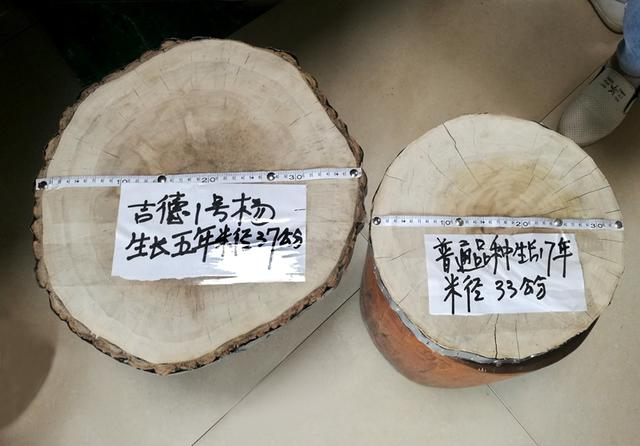 吉德1号杨
生长五年米径37公分
普通品种生长17年
米径33公分
10 20 30
10 20 30